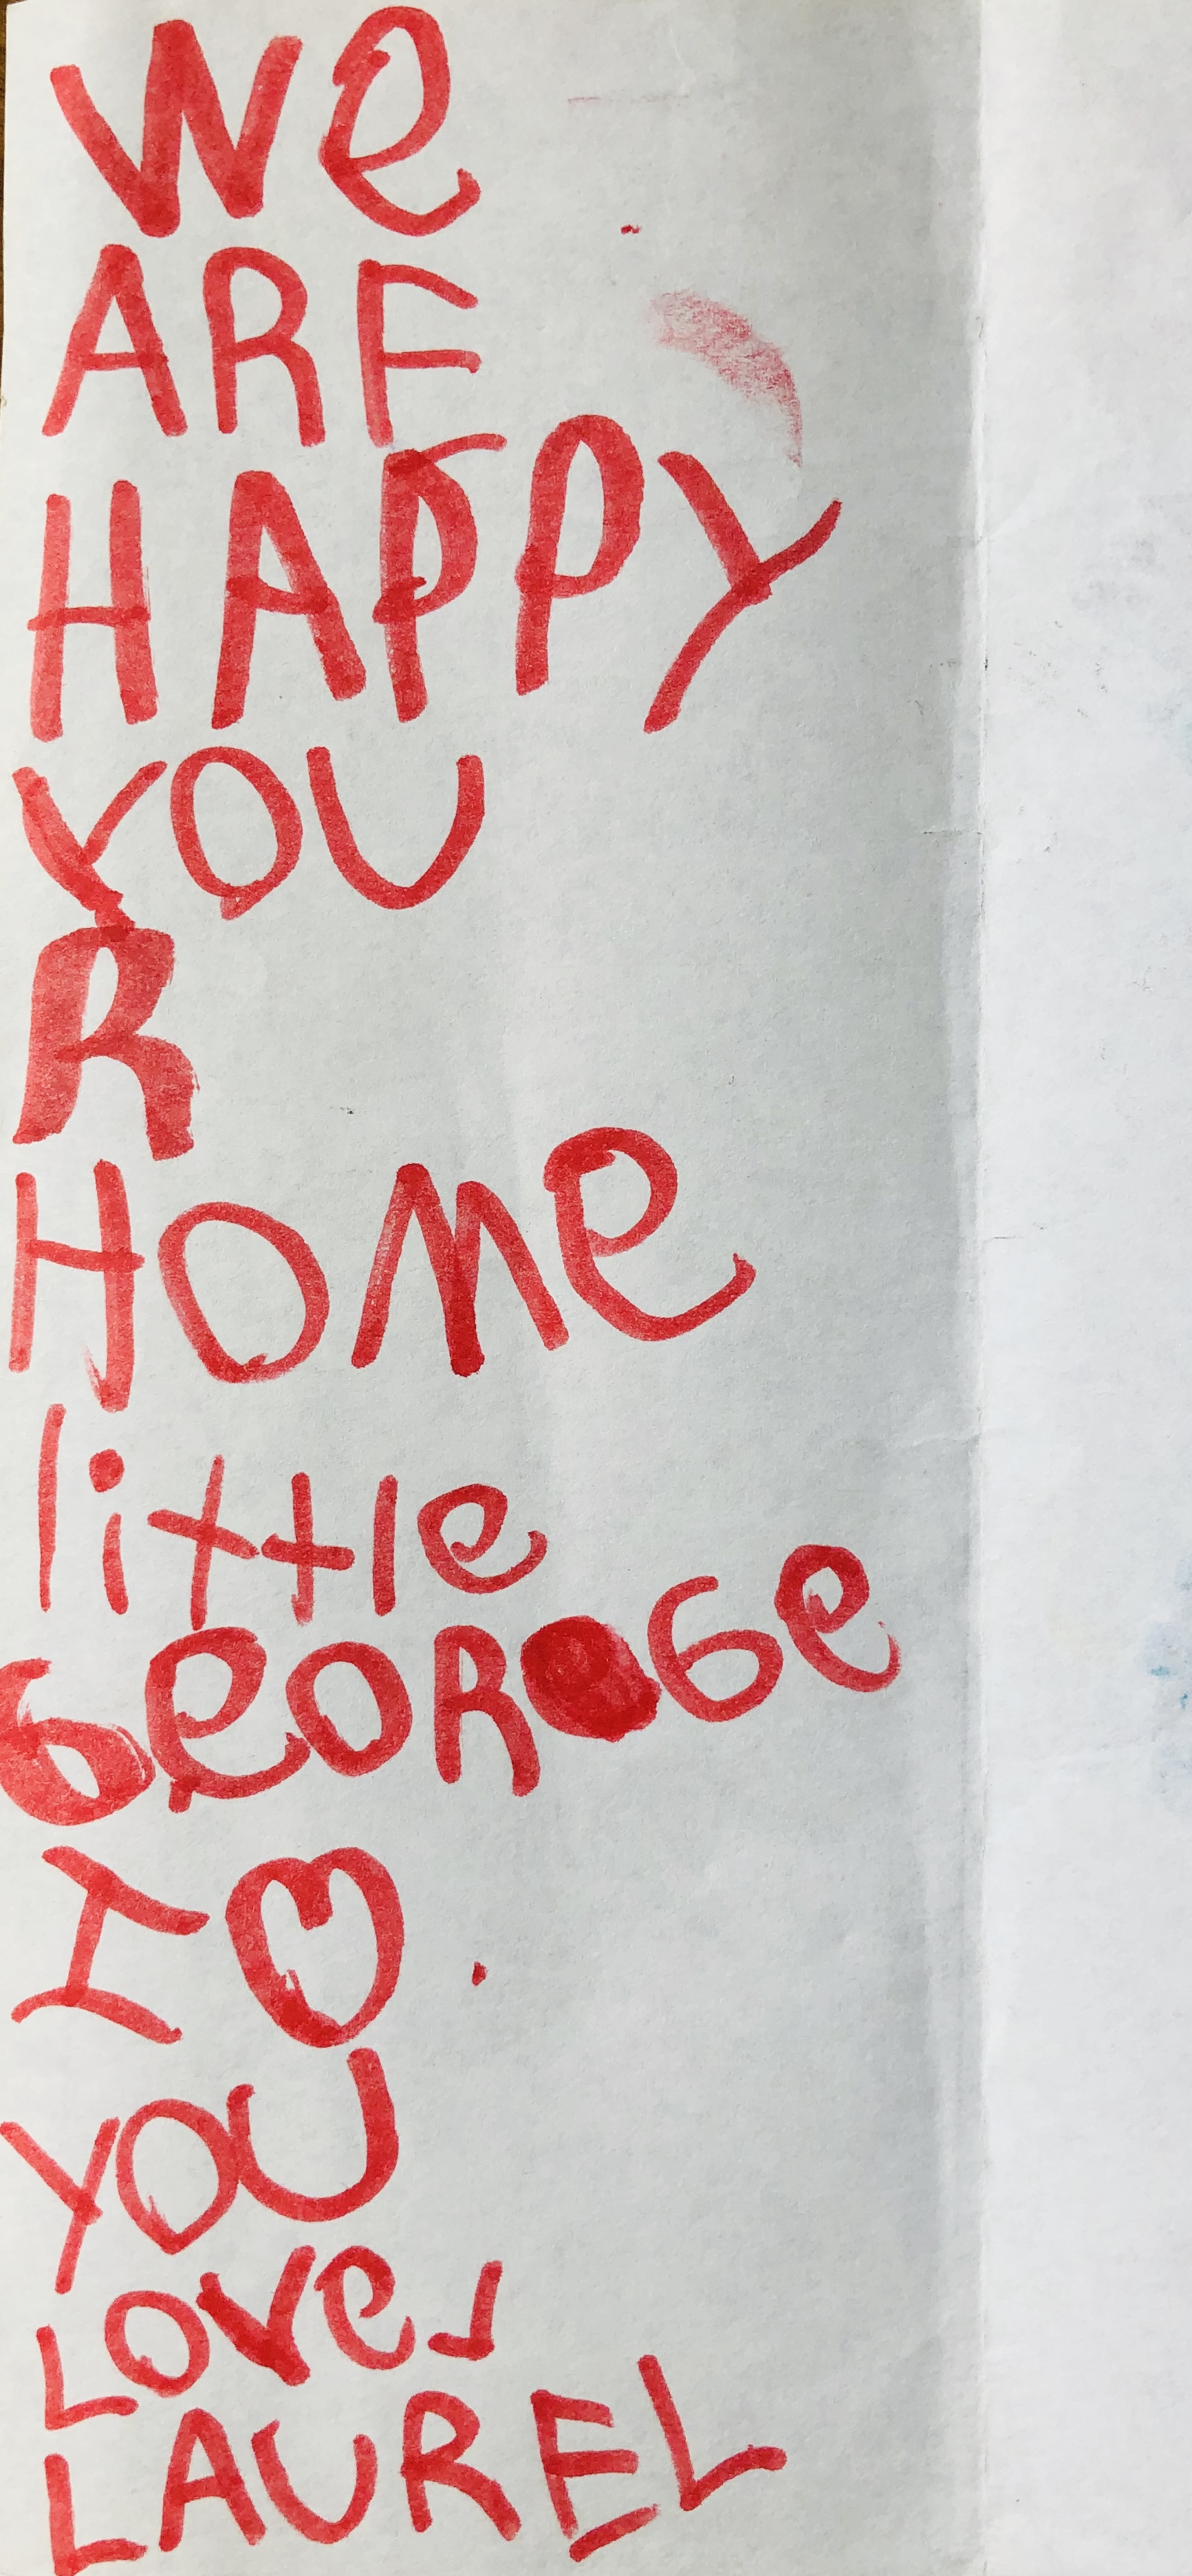 We
ARE
HAPPY
YOU
R
HOMe
little
GeORGe
I ♡
YOU
LOve,
LAUREL